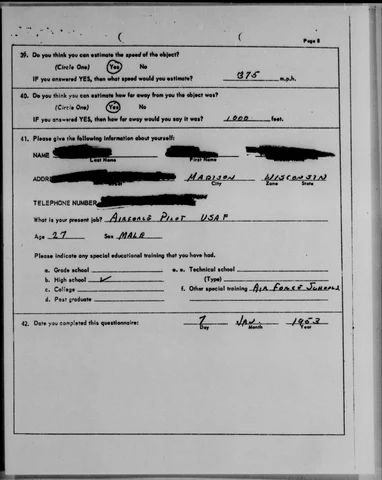 Page 8
39. Do you think you can estimate the speed of the object?
(Circle One) Yes No
IF you answered YES, then what speed would you estimate? 375 m.p.h.
40. Do you think you can estimate how far away from you the object was?
(Circle One) Yes No
IF you answered YES, then how far away would you say it was? 1000 feet.
41. Please give the following information about yourself:
NAME
Last Name First Name
ADDR MADISON WISCONSIN
City Zone State
TELEPHONE NUMBER
What is your present job? PILOT USAF
Age 27 Sex MALE
Please indicate any special educational training that you have had.
a. Grade school e. Technical school
b. High school ✓ (Type)
c. College f. Other special training AIR FORCE SCHOOLS
d. Post graduate
42. Date you completed this questionnaire: 7 JAN. 1953
Day Month Year